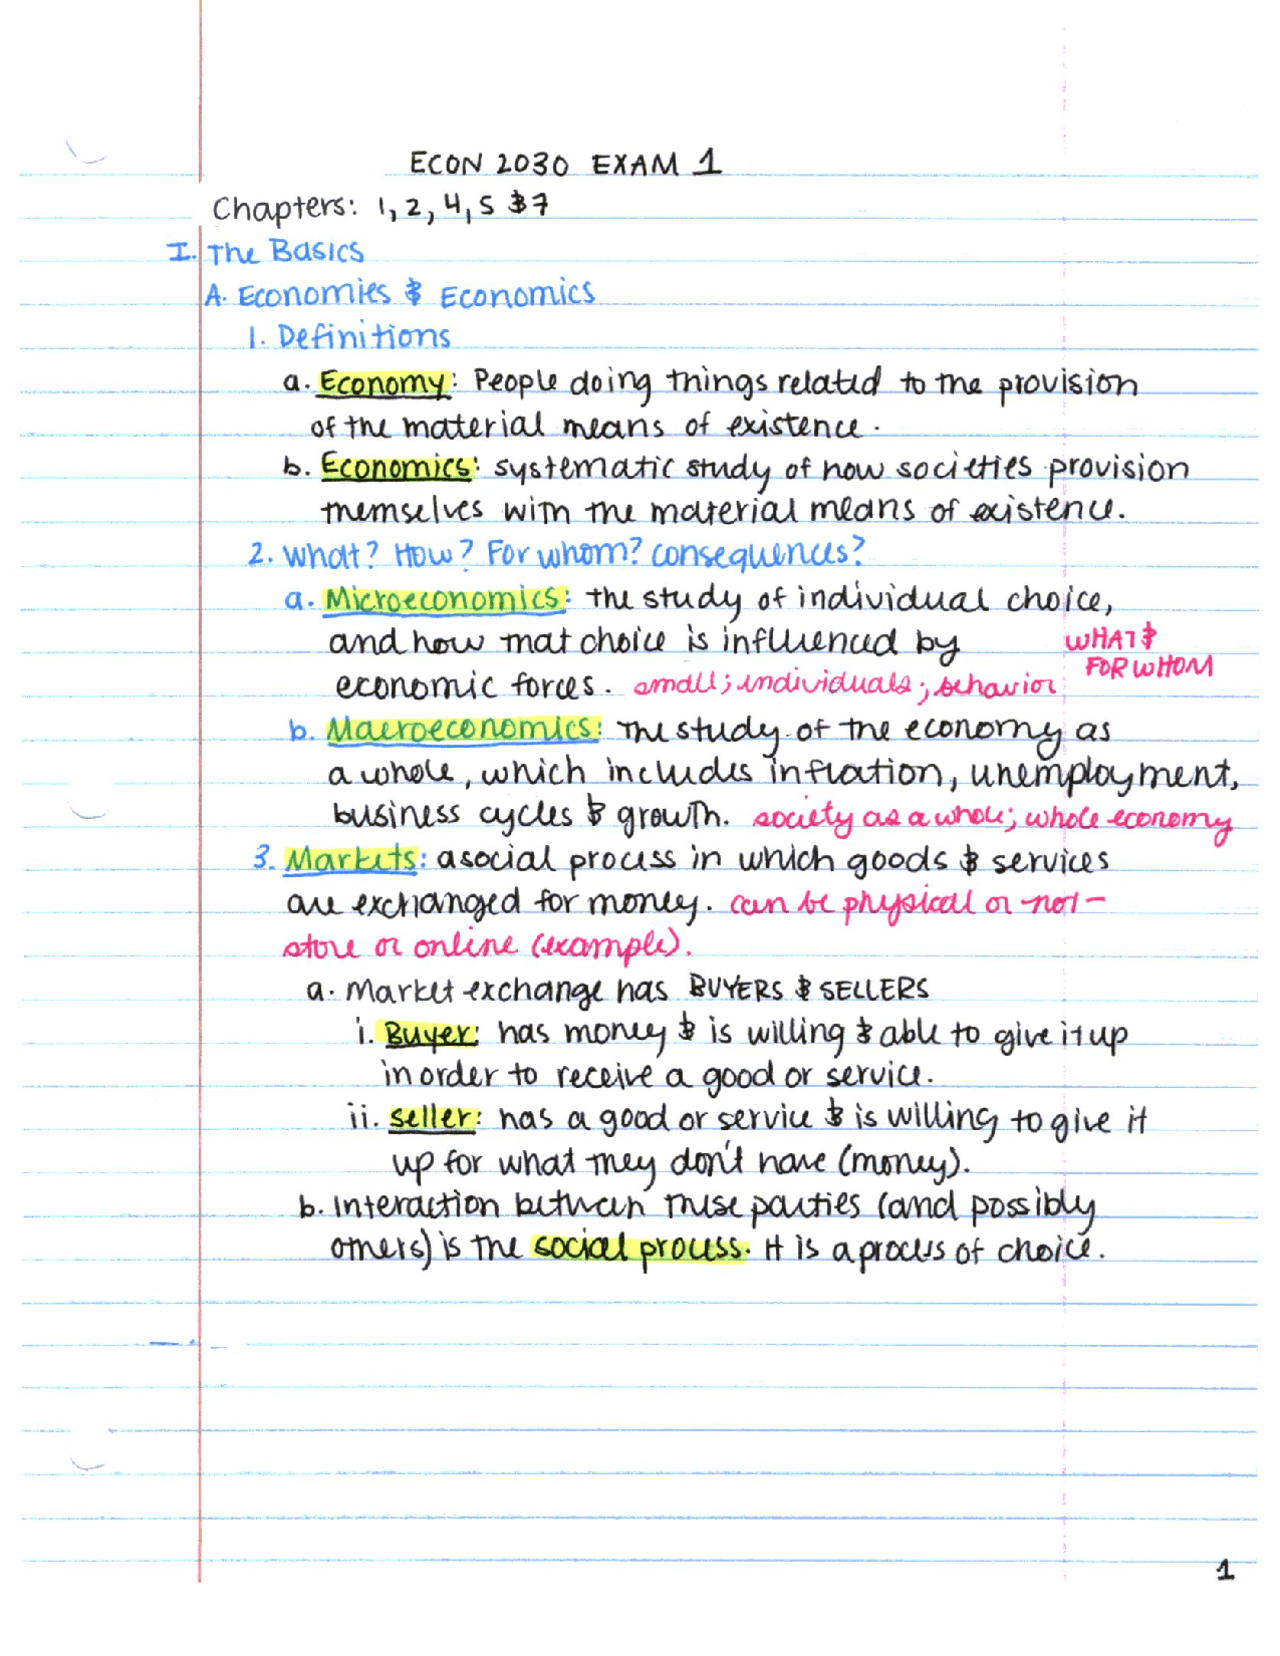 ECON 2030 EXAM 1
Chapters: 1, 2, 4, 5 & 7
I. The Basics
A. Economies & Economics
1. Definitions
a. Economy: People doing things related to the provision
of the material means of existence.
b. Economics: systematic study of how societies provision
themselves with the material means of existence.
2. What? How? For whom? consequences?
a. Microeconomics: the study of individual choice,
and how that choice is influenced by
WHAT &
FOR WHOM
economic forces. small; individuals; behavior
b. Macroeconomics: the study of the economy as
a whole, which includes inflation, unemployment,
business cycles & growth. society as a whole; whole economy
3. Markets: a social process in which goods & services
are exchanged for money. can be physical or not-
store or online (example).
a. Market exchange has BUYERS & SELLERS
i. Buyer: has money & is willing & able to give it up
in order to receive a good or service.
ii. seller: has a good or service & is willing to give it
up for what they don't have (money).
b. Interaction between these parties (and possibly
others) is the social process. It is a process of choice.
1